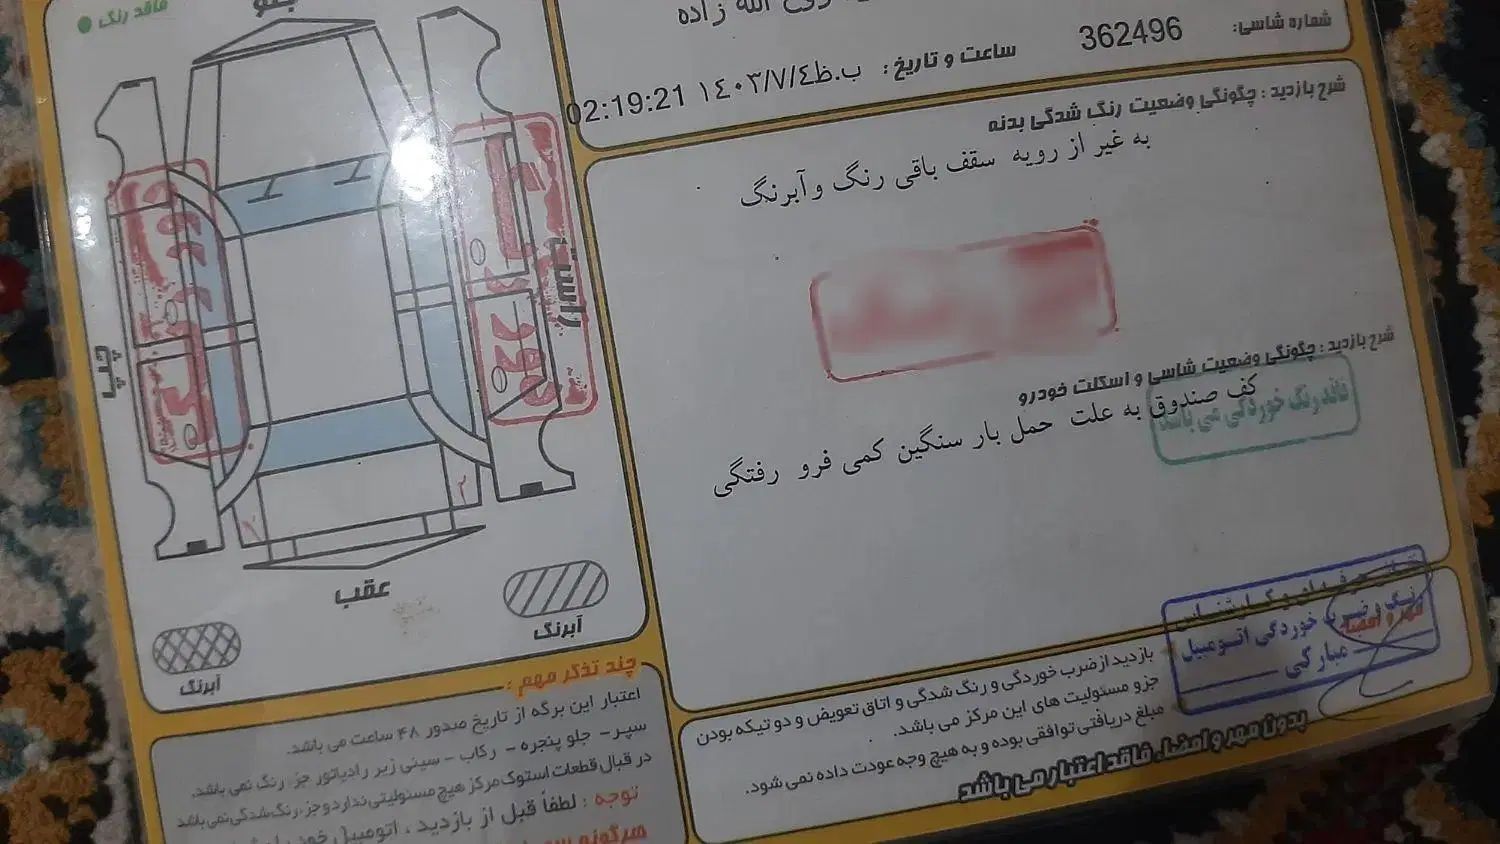 الله زاده
شماره شاسی: 362496
ساعت و تاریخ : ب.ظ ١٤٠٣/٧/٤ 02:19:21
شرح بازدید : چگونگی وضعیت رنگ شدگی بدنه
به غیر از رویه سقف باقی رنگ و آبرنگ
شرح بازدید : چگونگی وضعیت شاسی و اسکلت خودرو
کف صندوق به علت حمل بار سنگین کمی فرو رفتگی
رنگ خوردگی می باشد
رنگ و ضربه خوردگی اتومبیل
مبارکی
مهر و امضا
بازدید از ضرب خوردگی و رنگ شدگی و اتاق تعویض و دو تیکه بودن
جزو مسئولیت های این مرکز می باشد.
مبلغ دریافتی توافقی بوده و به هیچ وجه عودت داده نمی شود.
بدون مهر و امضاء فاقد اعتبار می باشد
فاقد رنگ
جلو
راست
چپ
عقب
آبرنگ
آبرنگ
چند تذکر مهم :
اعتبار این برگه از تاریخ صدور ۴۸ ساعت می باشد.
سپر - جلو پنجره - رکاب - سینی زیر رادیاتور جزء رنگ نمی باشد.
در قبال قطعات استوک مرکز هیچ مسئولیتی ندارد و جزء رنگ شدگی نمی باشد
توجه : لطفاً قبل از بازدید ، اتومبیل خود را
هرگونه